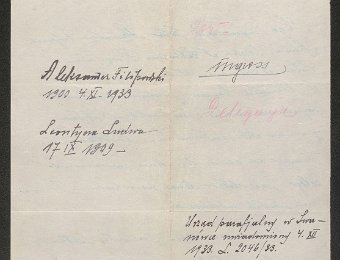 Aleksander Filipowski
1900 4.XI - 1933
Leontyna Ludwa
17 IX 1899 -
Delegacya
Urząd parafjalny w Iwa-
nówce uwiadomiony 4. XII
1933. L. 2046/33.